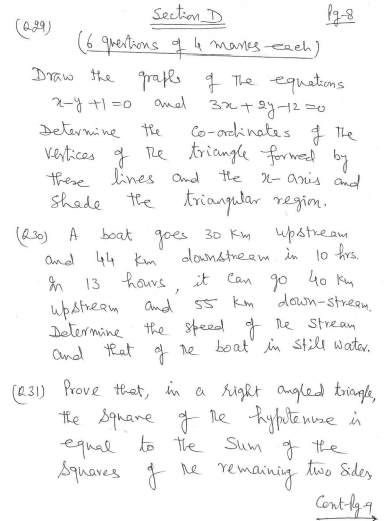 Section D
Pg-8
(Q29) (6 questions of 4 marks each)
Draw the graphs of the equations
x-y+1=0 and 3x+2y-12=0
Determine the co-ordinates of the
vertices of the triangle formed by
these lines and the x-axis and
shade the triangular region.
(Q30) A boat goes 30 km upstream
and 44 km downstream in 10 hrs.
In 13 hours, it can go 40 km
upstream and 55 km down-stream.
Determine the speed of the stream
and that of the boat in still water.
(Q31) Prove that, in a right angled triangle,
the square of the hypotenuse is
equal to the sum of the
squares of the remaining two sides,
Cont-Pg-9